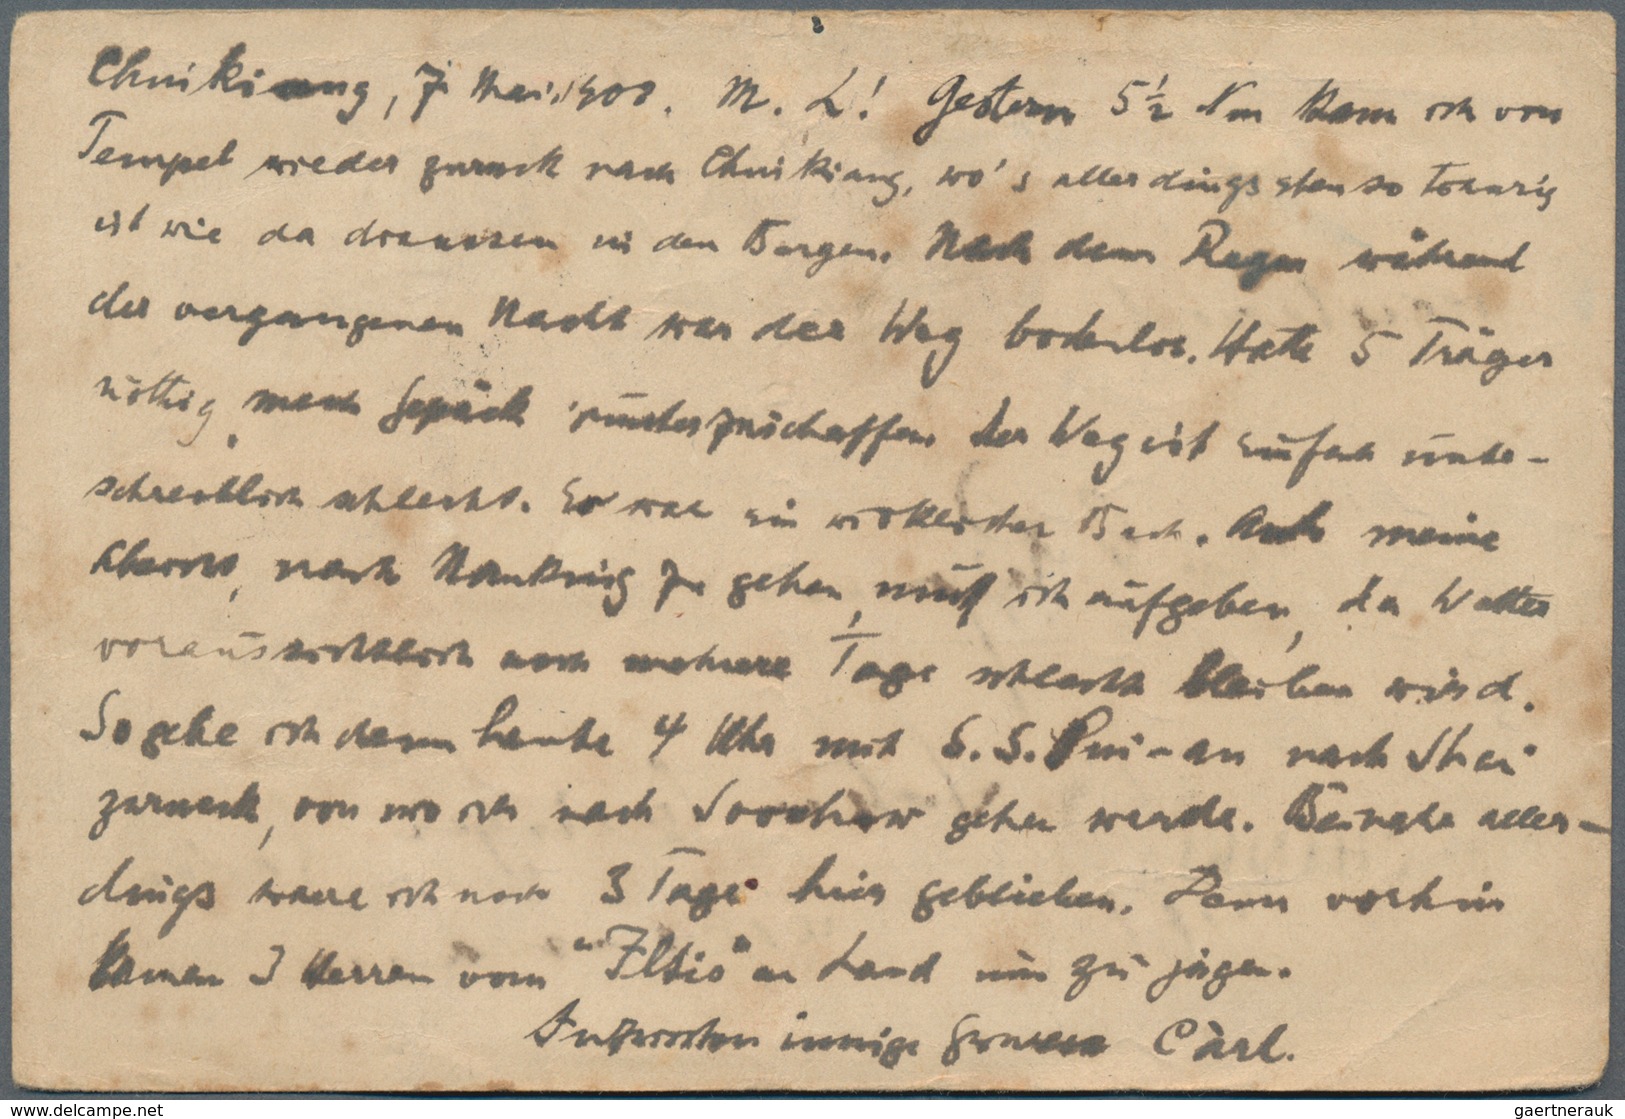 Chinkiang, 7. Mai 1908. M. L! Gestern 5½ Nm kam ich vom
Tempel wieder zurück nach Chinkiang, wo's allerdings ebenso traurig
ist wie da draussen in den Bergen. Nach dem Regen während
der vergangenen Nacht war der Weg bodenlos. Hatte 5 Träger
nöthig, mein Gepäck runterzuschaffen der Weg ist einfach unbe-
schreiblich schlecht. Er war ein wirklicher Bach. Auch meine
Absicht, nach Nanking zu gehen, muß ich aufgeben, da Wetter
voraussichtlich noch mehrere Tage schlecht bleiben wird.
So gehe ich denn heute 4 Uhr mit S. S. -an nach Shai
zurueck, von wo ich nach Soochow gehen werde. Beinahe aller-
dings waere ich noch 3 Tage hier geblieben. Denn vorhin
kamen 3 Herren vom "Iltis" an Land um zu jagen.
innige Carl.
www.delcampe.net
gaertnerauk